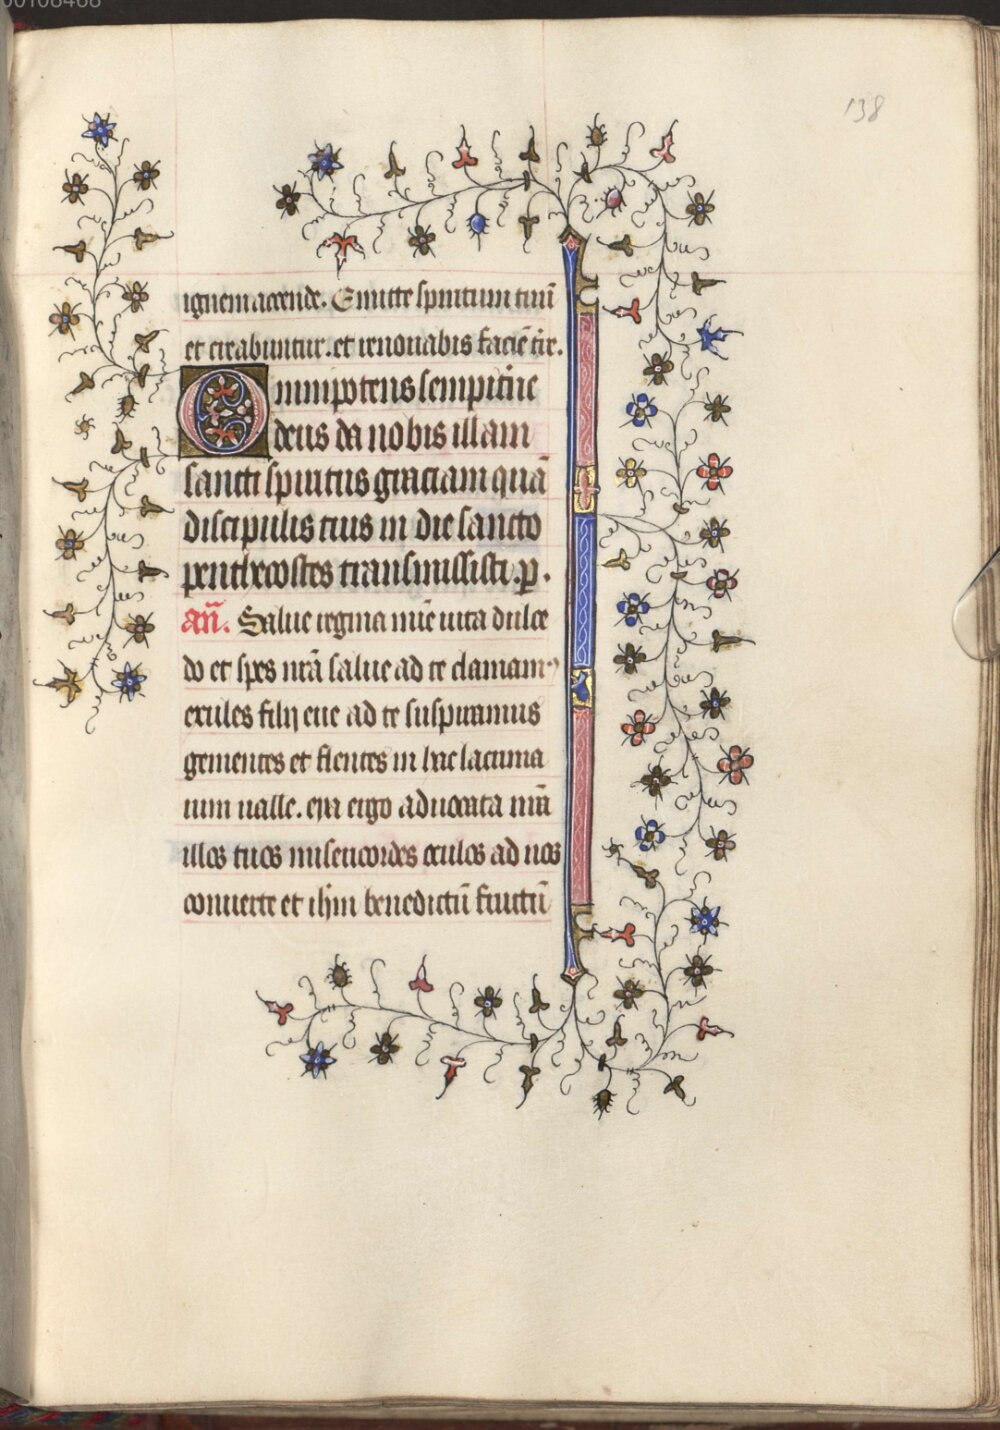 00108468
138
ignem accende. Emitte spiritum tuū
et creabuntur. et renouabis faciē tir̄.
Omnipotens sempitīne
deus da nobis illam
sancti spiritus graciam quā
discipulis tuis in die sancto
penthecostes transmissisti. p̄.
añ. Salue regina mīe uita dulce
do et spes nrā salue ad te clamam9
exules filij eue ad te suspiramus
gementes et flentes in hac lacrima
rum ualle. eya ergo aduocata nrā
illos tuos misericordes oculos ad nos
conuerte et ihm benedictū fructū